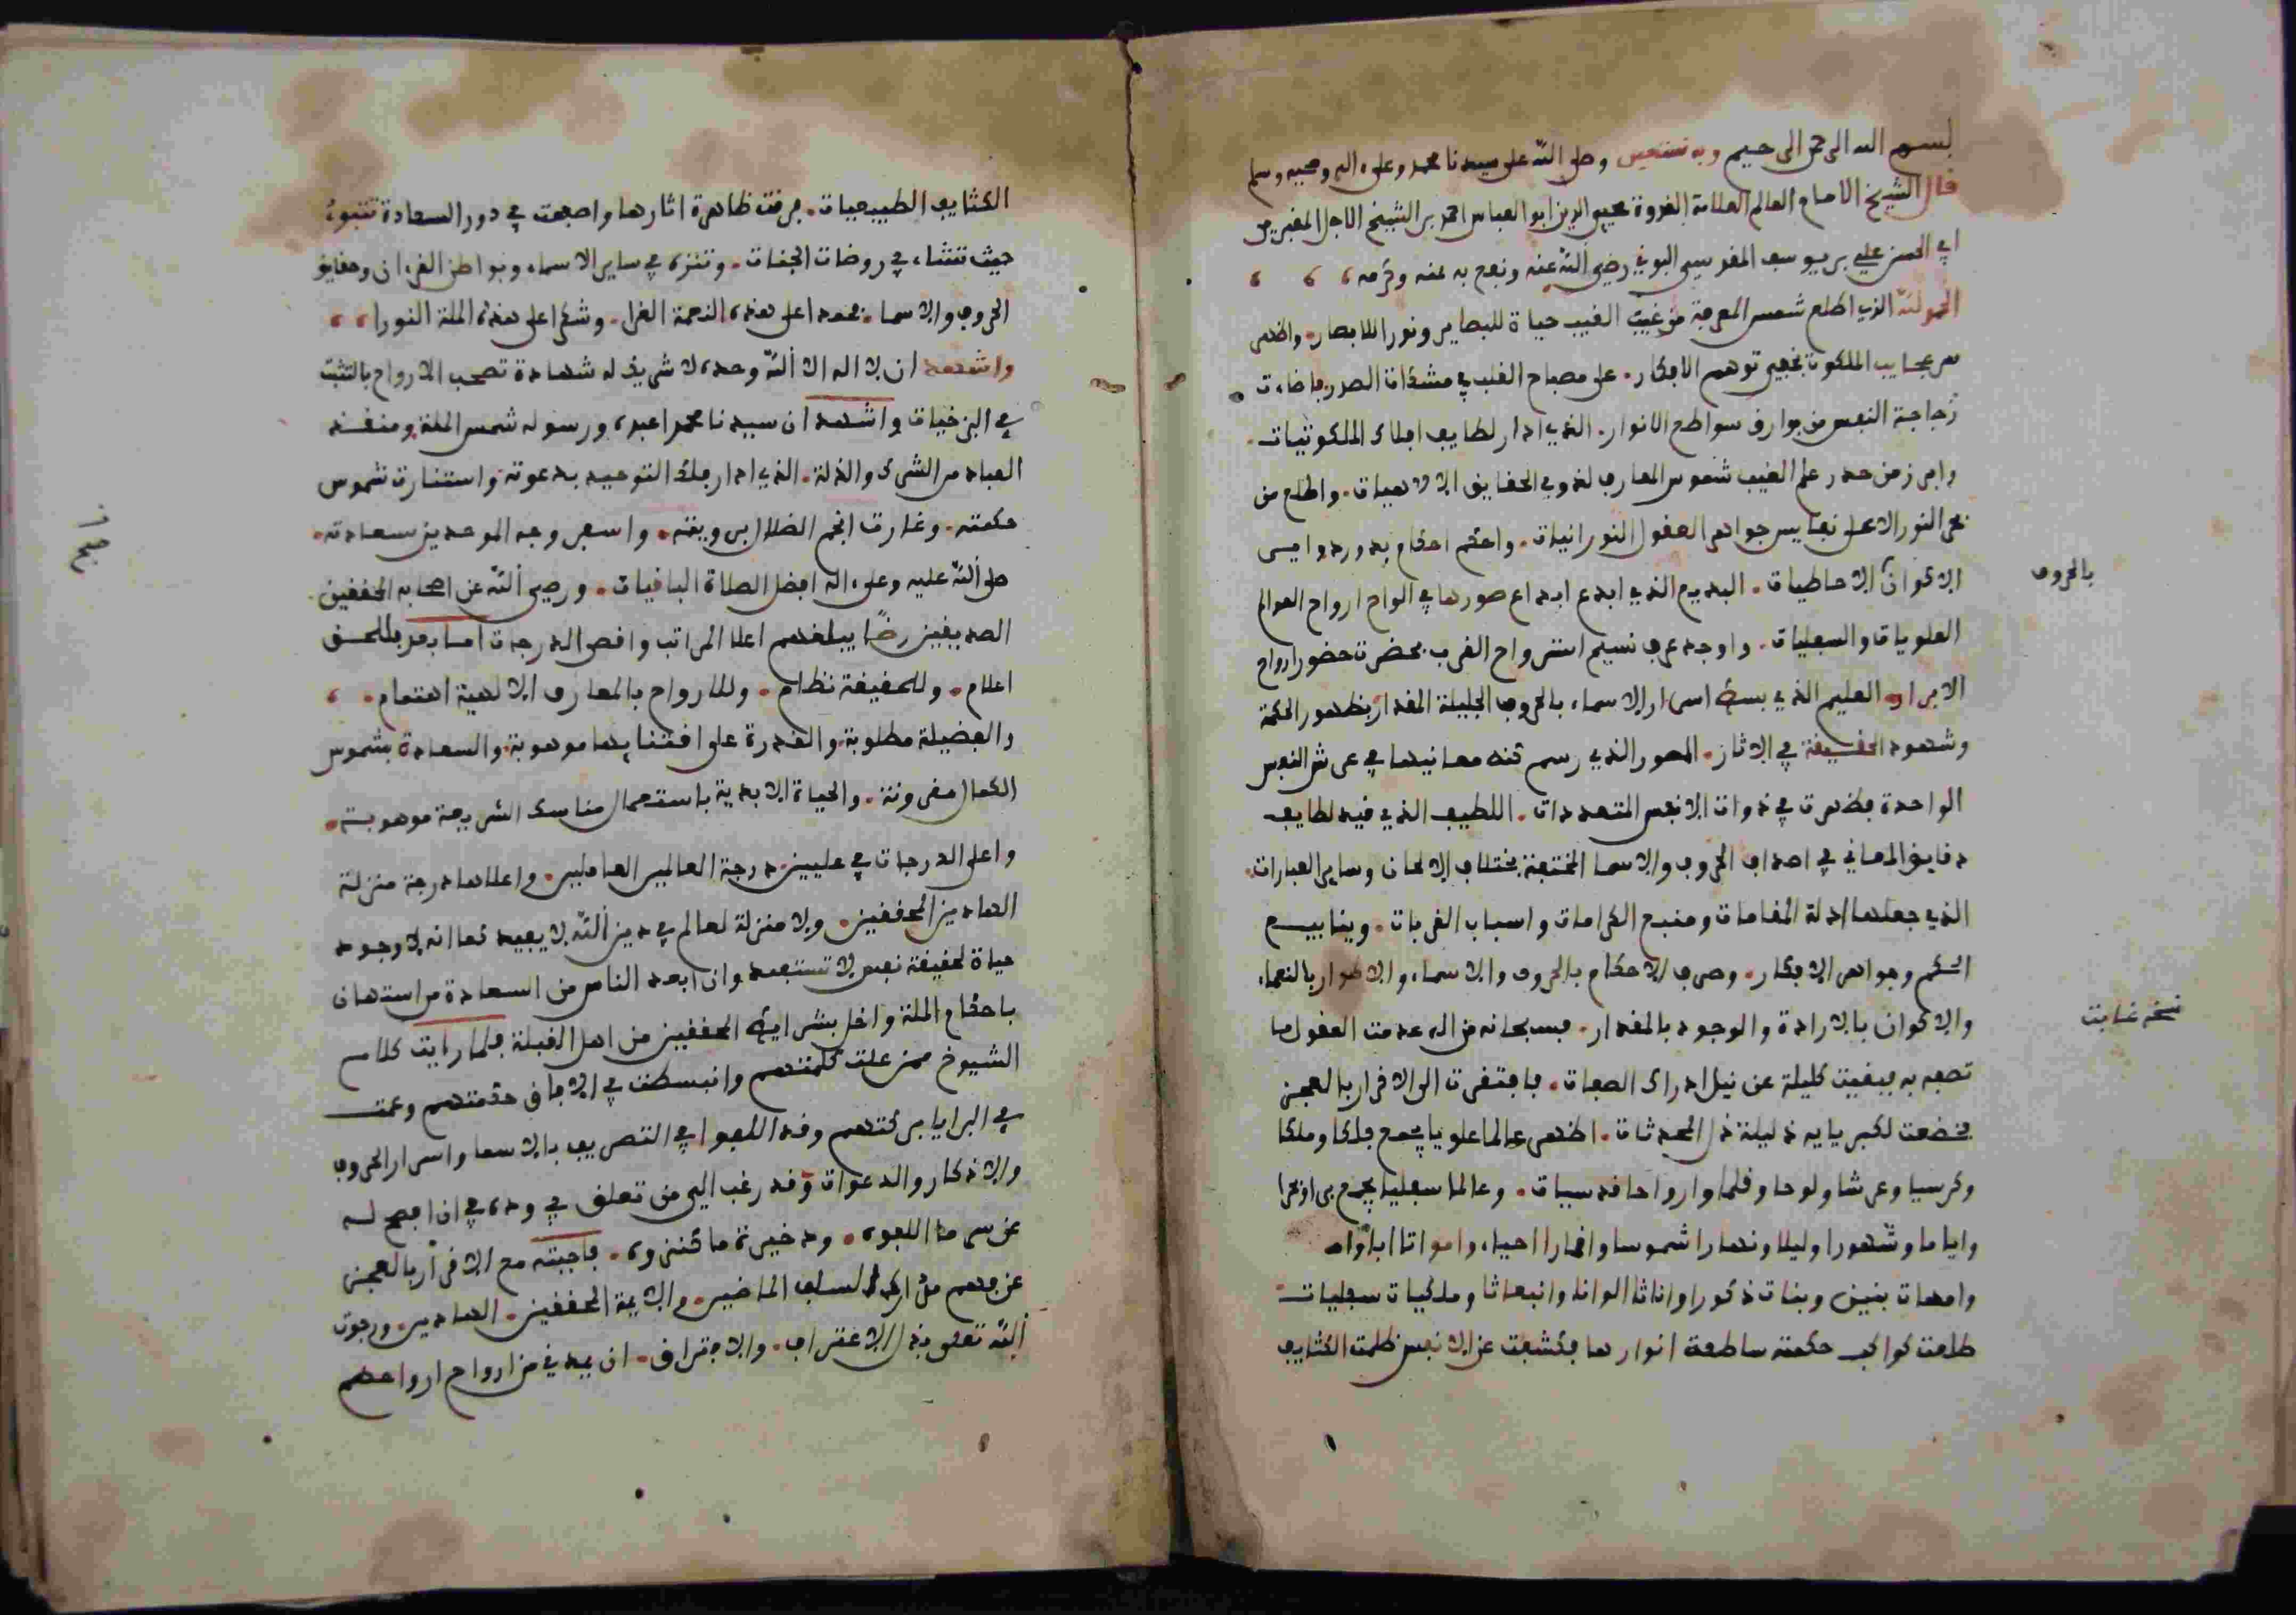 بسم الله الرحمن الرحيم وبه نستعين وصلى الله على سيدنا محمد وعلى اله وصحبه وسلم
قال الشيخ الامام العالم العلامة القدوة محيي الدين ابو العباس احمد بن الشيخ الاجل المقري
ابي الحسن علي بن يوسف البوني رضي الله عنه ونفع به بمنه وكرمه
الحمد لله الذي اطلع شمس المعرفة من غيب الغيب حياة للبصاير ونورا للابصار واظهر
من عجايب الملكوت توهم الافكار على مصباح القلب في مشكاة الصدر فاضات
زجاجة النفس من بوارق سواطع الانوار الذي ادار لطايف افلاك الملكوتيات
وابرز من خدر علم الغيب شموس المعارف لذوي الحقايق الالاهيات واطلع من
النور الاعلى نفايس جواهر العقول النورانيات واحكم احكام بدور دواير
الاكوان الاحاطيات البديع الذي ابدع ابداع صورها في الواح ارواح العوالم
بالحروف
العلويات والسفليات واوجد عرف نسيم استرواح القرب بحضرت حضور ارواح
الابرار العليم الذي بسط اسرار الاسماء بالحروف الجليلة المقدار بظهور الحكمة
وشهود الحقيقة في الاثار المصور الذي رسم كنه معانيها في عرش النفس
الواحدة فظهرت في ذوات الانفس المتعددات اللطيف الذي قيد لطايف
دقايق المعاني في اصداف الحروف والاسما المختلفة بختلاف الالحان وساير العبارات
الذي جعلها ادلة المقامات ومنبع الكرامات واسباب القربات وينابيع
الحكم وجواهر الافكار وصرف الاحكام بالحروف والاسماء والاطوار بالنعماء
والاكوان بالارادة والوجود بالمقدار فسبحانه من اله عدمت العقول ما
تصفه به فبقيت كليلة عن نيل ادراك الصفات فافتقرت الى الاقرار بالعجز
فخضعت لكبريايه ذليلة ذل المحدثات اظهر عالما علويا يجمع فلكا وملكا
وكرسيا وعرشا ولوحا وقلما وارواحا قدسيات وعالما سفليا يجمع برا وبحرا
واياما وشهورا وليلا ونهارا شموسا واقمارا احياء وامواتا اباواه
وامهات بنين وبنات ذكورا واناثا الوانا وانبعاثا وملكيات سفليات
طلعت كواكب حكمته ساطعة انوارها فكشفت عن الانفس ظلمت الكثايف
الكثايف الطبيعيات فرقت ظاهرة اثارها واصبحت في دور السعادة تتبوء
حيث تشاء في روضات الجنات وتتنزه في ساير الاسماء وبواطن القرءان وحقايق
الحروف والاسما نحمده على هذه النعمة الغرا ونشكره على هذه الملة النورا
واشهد ان لا اله الا الله وحده لا شريك له شهادة تصحب الارواح بالتثبت
في البرزخيات واشهد ان سيدنا محمدا عبده ورسوله شمس الملة ومنقذ
العباد من الشرك والذلة الذي ادار فلك التوحيد بدعوته واستنارت شموس
حكمته وغارت انجم الضلال برويته واسفر وجه الموحدين سعادته
صلى الله عليه وعلى اله افضل الصلاة الباقيات ورضي الله عن اصحابه المحققين
الصديقين رضا يبلغهم اعلا المراتب واقصى الدرجات اما بعد فللحق
اعلام وللحقيقة نظام وللارواح بالمعارف الالاهية اهتمام
والفضيلة مطلوبة والقدرة على اقتنايها موهوبة والسعادة بشموس
الكمال مقرونة والحياة الابدية باستعمال مناسك الشريعة موهوبة
واعلى الدرجات في عليين درجة العالمين العاملين واعلاها درجة منزلة
الهادين المحققين ولا منزلة لعالم في دين الله لا يفيد كما انه لا وجود
حياة لحقيقة نفس لا تستعبد وان ابعد الناس من السعادة من استهان
باحكام الملة واخل بشرايط المحققين من اهل القبلة فلما رايت كلام
الشيوخ ممن علت كلمتهم وانبسطت في الافاق حكمتهم وعمت
في البرايا بركتهم وقد الفوا في التصريف بالاسما واسرار الحروف
والاذكار والدعوات وقد رغب الي من تعلق في وده في ان افصح له
عن سر ما الفوه وذخيرة ما كنزوه فاجبته مع الاقرار بالعجز
عن فهم السلف الماضين والايمة المحققين الهادين ورجوت
الله تعلى بذل الاعتراف والاقتراف ان يمدني من ارواح ارواحهم